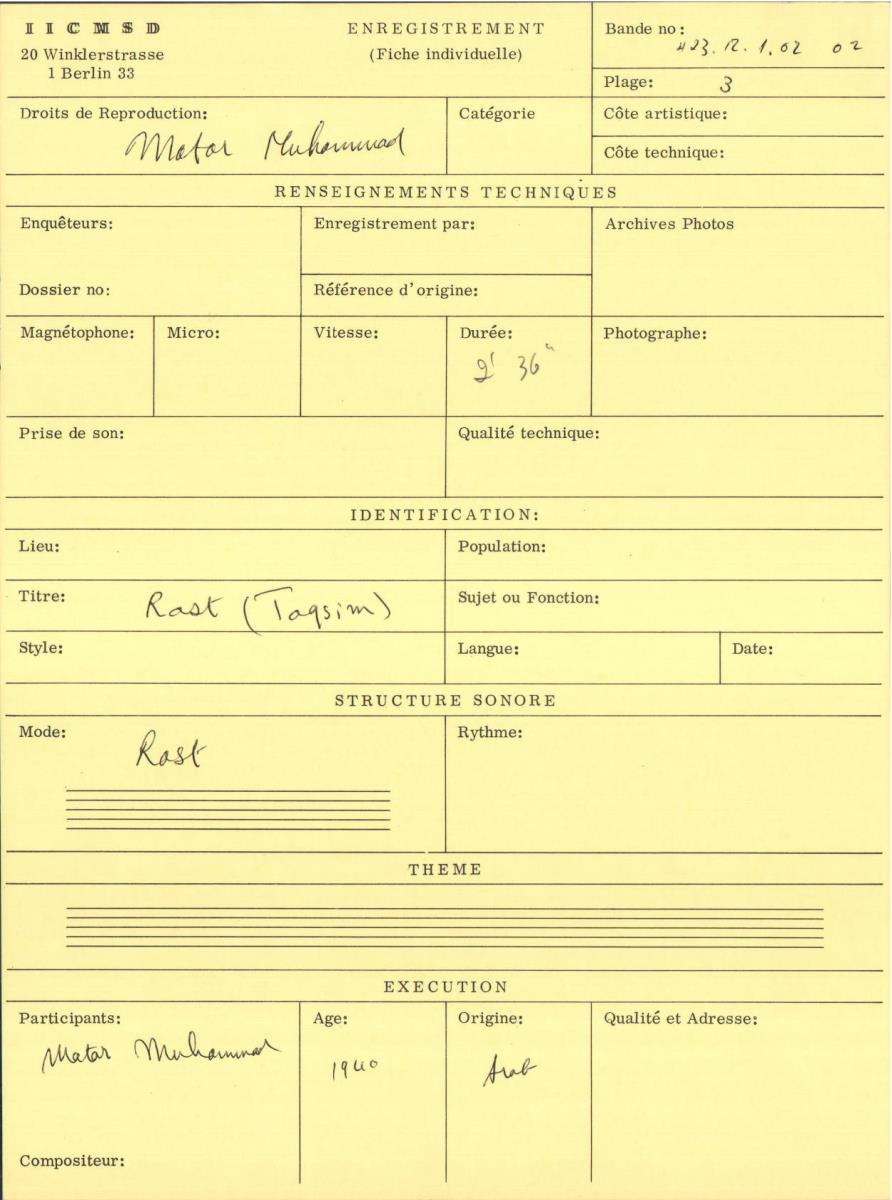 I I C M S D
20 Winklerstrasse
1 Berlin 33
ENREGISTREMENT
(Fiche individuelle)
Bande no: 423.12.1.02 02
Plage: 3
Droits de Reproduction:
Matar Muhammad
Catégorie
Côte artistique:
Côte technique:
RENSEIGNEMENTS TECHNIQUES
Enquêteurs:
Enregistrement par:
Archives Photos
Dossier no:
Référence d'origine:
Magnétophone:
Micro:
Vitesse:
Durée:
2' 36"
Photographe:
Prise de son:
Qualité technique:
IDENTIFICATION:
Lieu:
Population:
Titre: Rast (Taqsim)
Sujet ou Fonction:
Style:
Langue:
Date:
STRUCTURE SONORE
Mode: Rast
Rythme:
THEME
EXECUTION
Participants:
Matar Muhammad
Age:
1940
Origine:
Arab
Qualité et Adresse:
Compositeur: